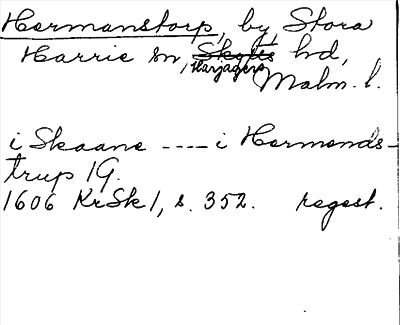 Hermanstorp, by, Stora
Harrie sn, Harjagers hd,
Malm. l.
i Skaane ---- i Hermends-
trup 1 G.
1606 KrSk 1, s. 352. regest.